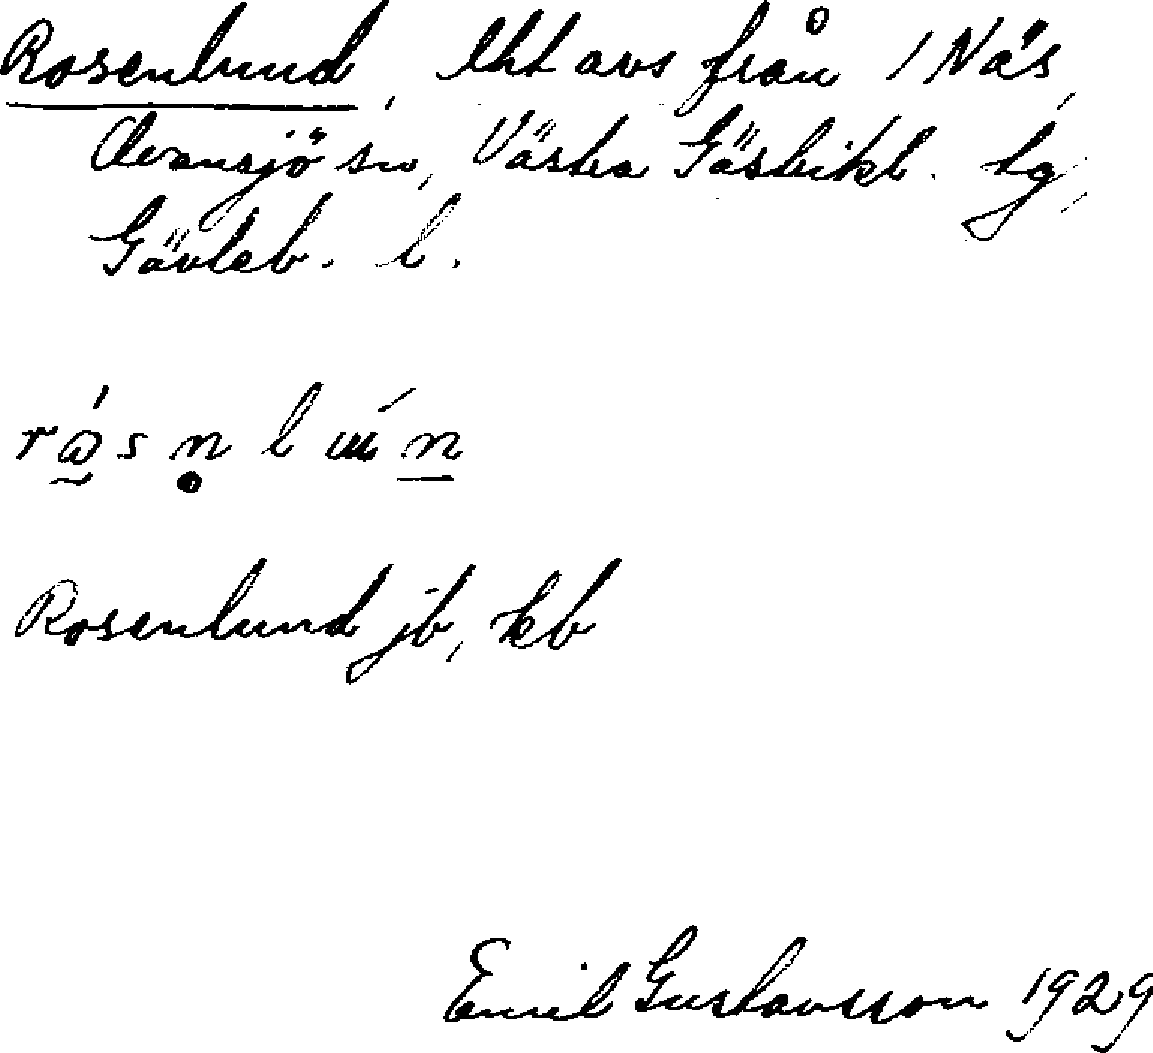 Rosenlund, lht avs från 1 Näs,
Ovansjö sn, Västra Gästrikl. tg,
Gävleb. l.
Rosenlund jb, kb
Emil Gustavsson 1929